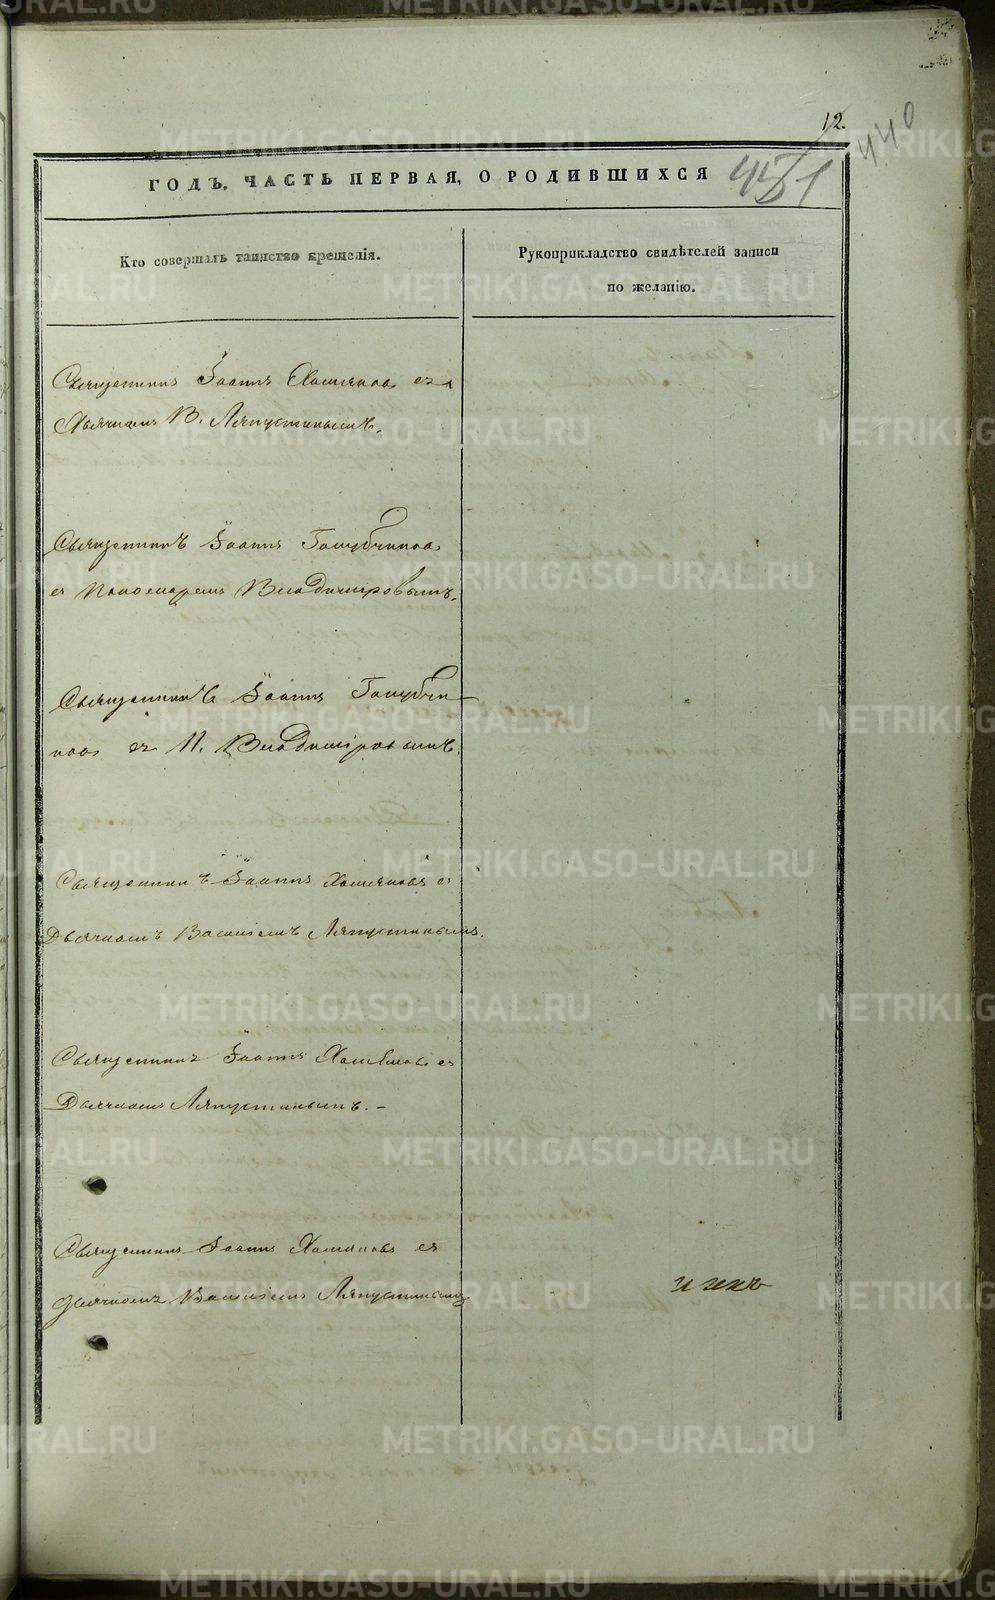 12.
440
451
ГОДЪ. ЧАСТЬ ПЕРВАЯ, О РОДИВШИХСЯ
Кто совершалъ таинство крещенія.
Рукоприкладство свидѣтелей записи
по желанію.
Священникъ Іоаннъ Хомяковъ съ
Дьячкомъ В. Ляпустинымъ.
Священникъ Іоаннъ Голубчиковъ
съ Пономаремъ Владиміровымъ.
Священникъ Іоаннъ Голубчи-
ковъ съ П. Владиміровымъ.
Священникъ Іоаннъ Хомяковъ съ
Дьячкомъ Василіемъ Ляпустинымъ.
Священникъ Іоаннъ Хомяковъ съ
Дьячкомъ Ляпустинымъ. -
Священникъ Іоаннъ Хомяковъ съ
дьячкомъ Василіемъ Ляпустинымъ
METRIKI.GASO-URAL.RU